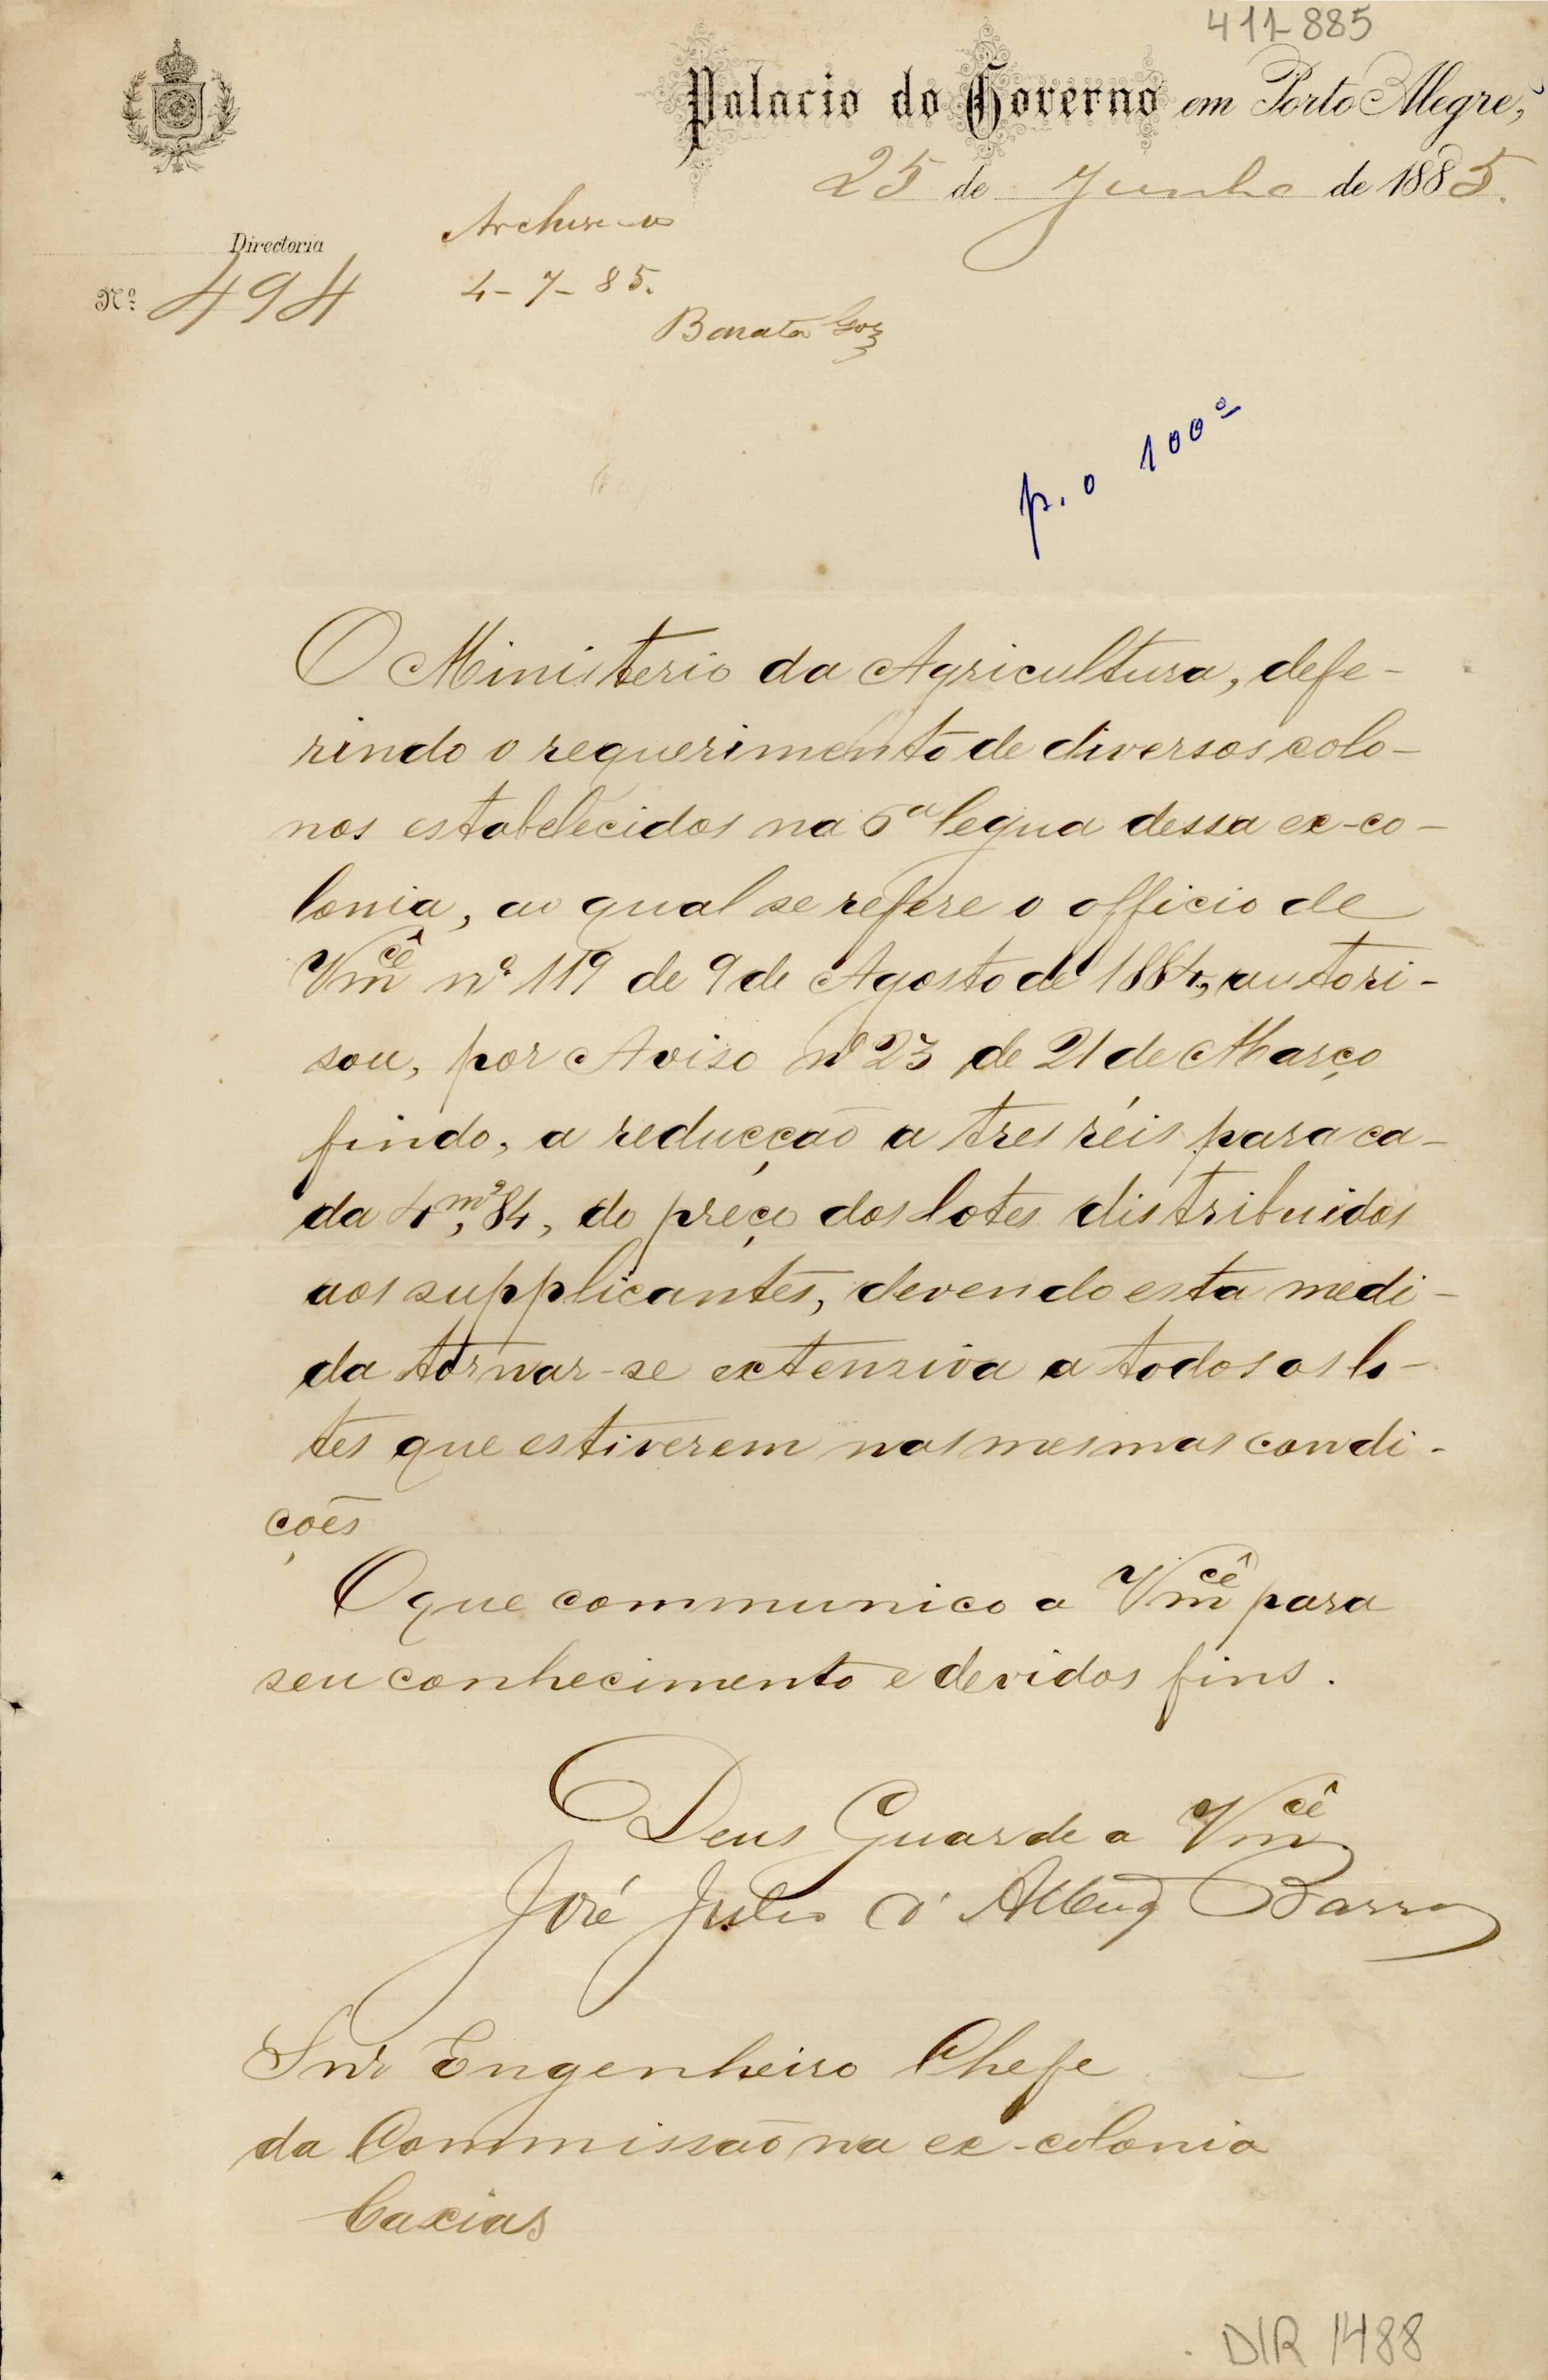 411-885
Palacio do Governo em Porto Alegre,
25 de Junho de 1885.
Directoria
Nº 494
Archive-se
4-7-85.
Barata Goz
p. o 100º
O Ministerio da Agricultura, defe-
rindo o requerimento de diversos colo-
nos estabelecidos na 6ª legua dessa ex-co-
lonia, ao qual se refere o officio de
Vmcê nº 119 de 9 de Agosto de 1884, autori-
sou, por Aviso nº 23 de 21 de Março
findo, a reducção a tres réis para ca-
da 4m²,84, do preço dos lotes distribuidos
aos supplicantes, devendo esta medi-
da tornar-se extensiva a todos os lo-
tes que estiverem nas mesmas condi-
ções
O que communico a Vmcê para
seu conhecimento e devidos fins.
Deus Guarde a Vmcê
José Julio d' Albuq Barros
Snr Engenheiro Chefe
da Commissão na ex-colonia
Caxias
DIR 1488